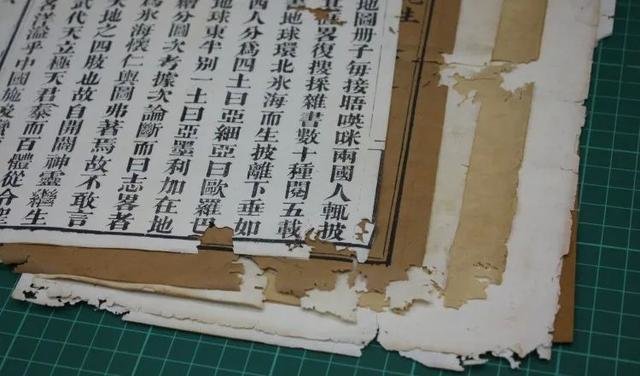 地圖册子毎接晤𠸄咪兩國人輒披
畧復搜採雜書數十種閱五載
地球環北氷海而生披離下垂如
西人分爲四土曰亞細亞曰歐羅巴
地球東半別一土曰亞墨利加在地
繪分圖次考據次論斷而曰志畧者
爲氷海懷仁與圖弗著焉故不敢言
大地之四肢也故自開闢神靈繼生
武代天立極天君泰而百體從令
者洋溢乎中國施及